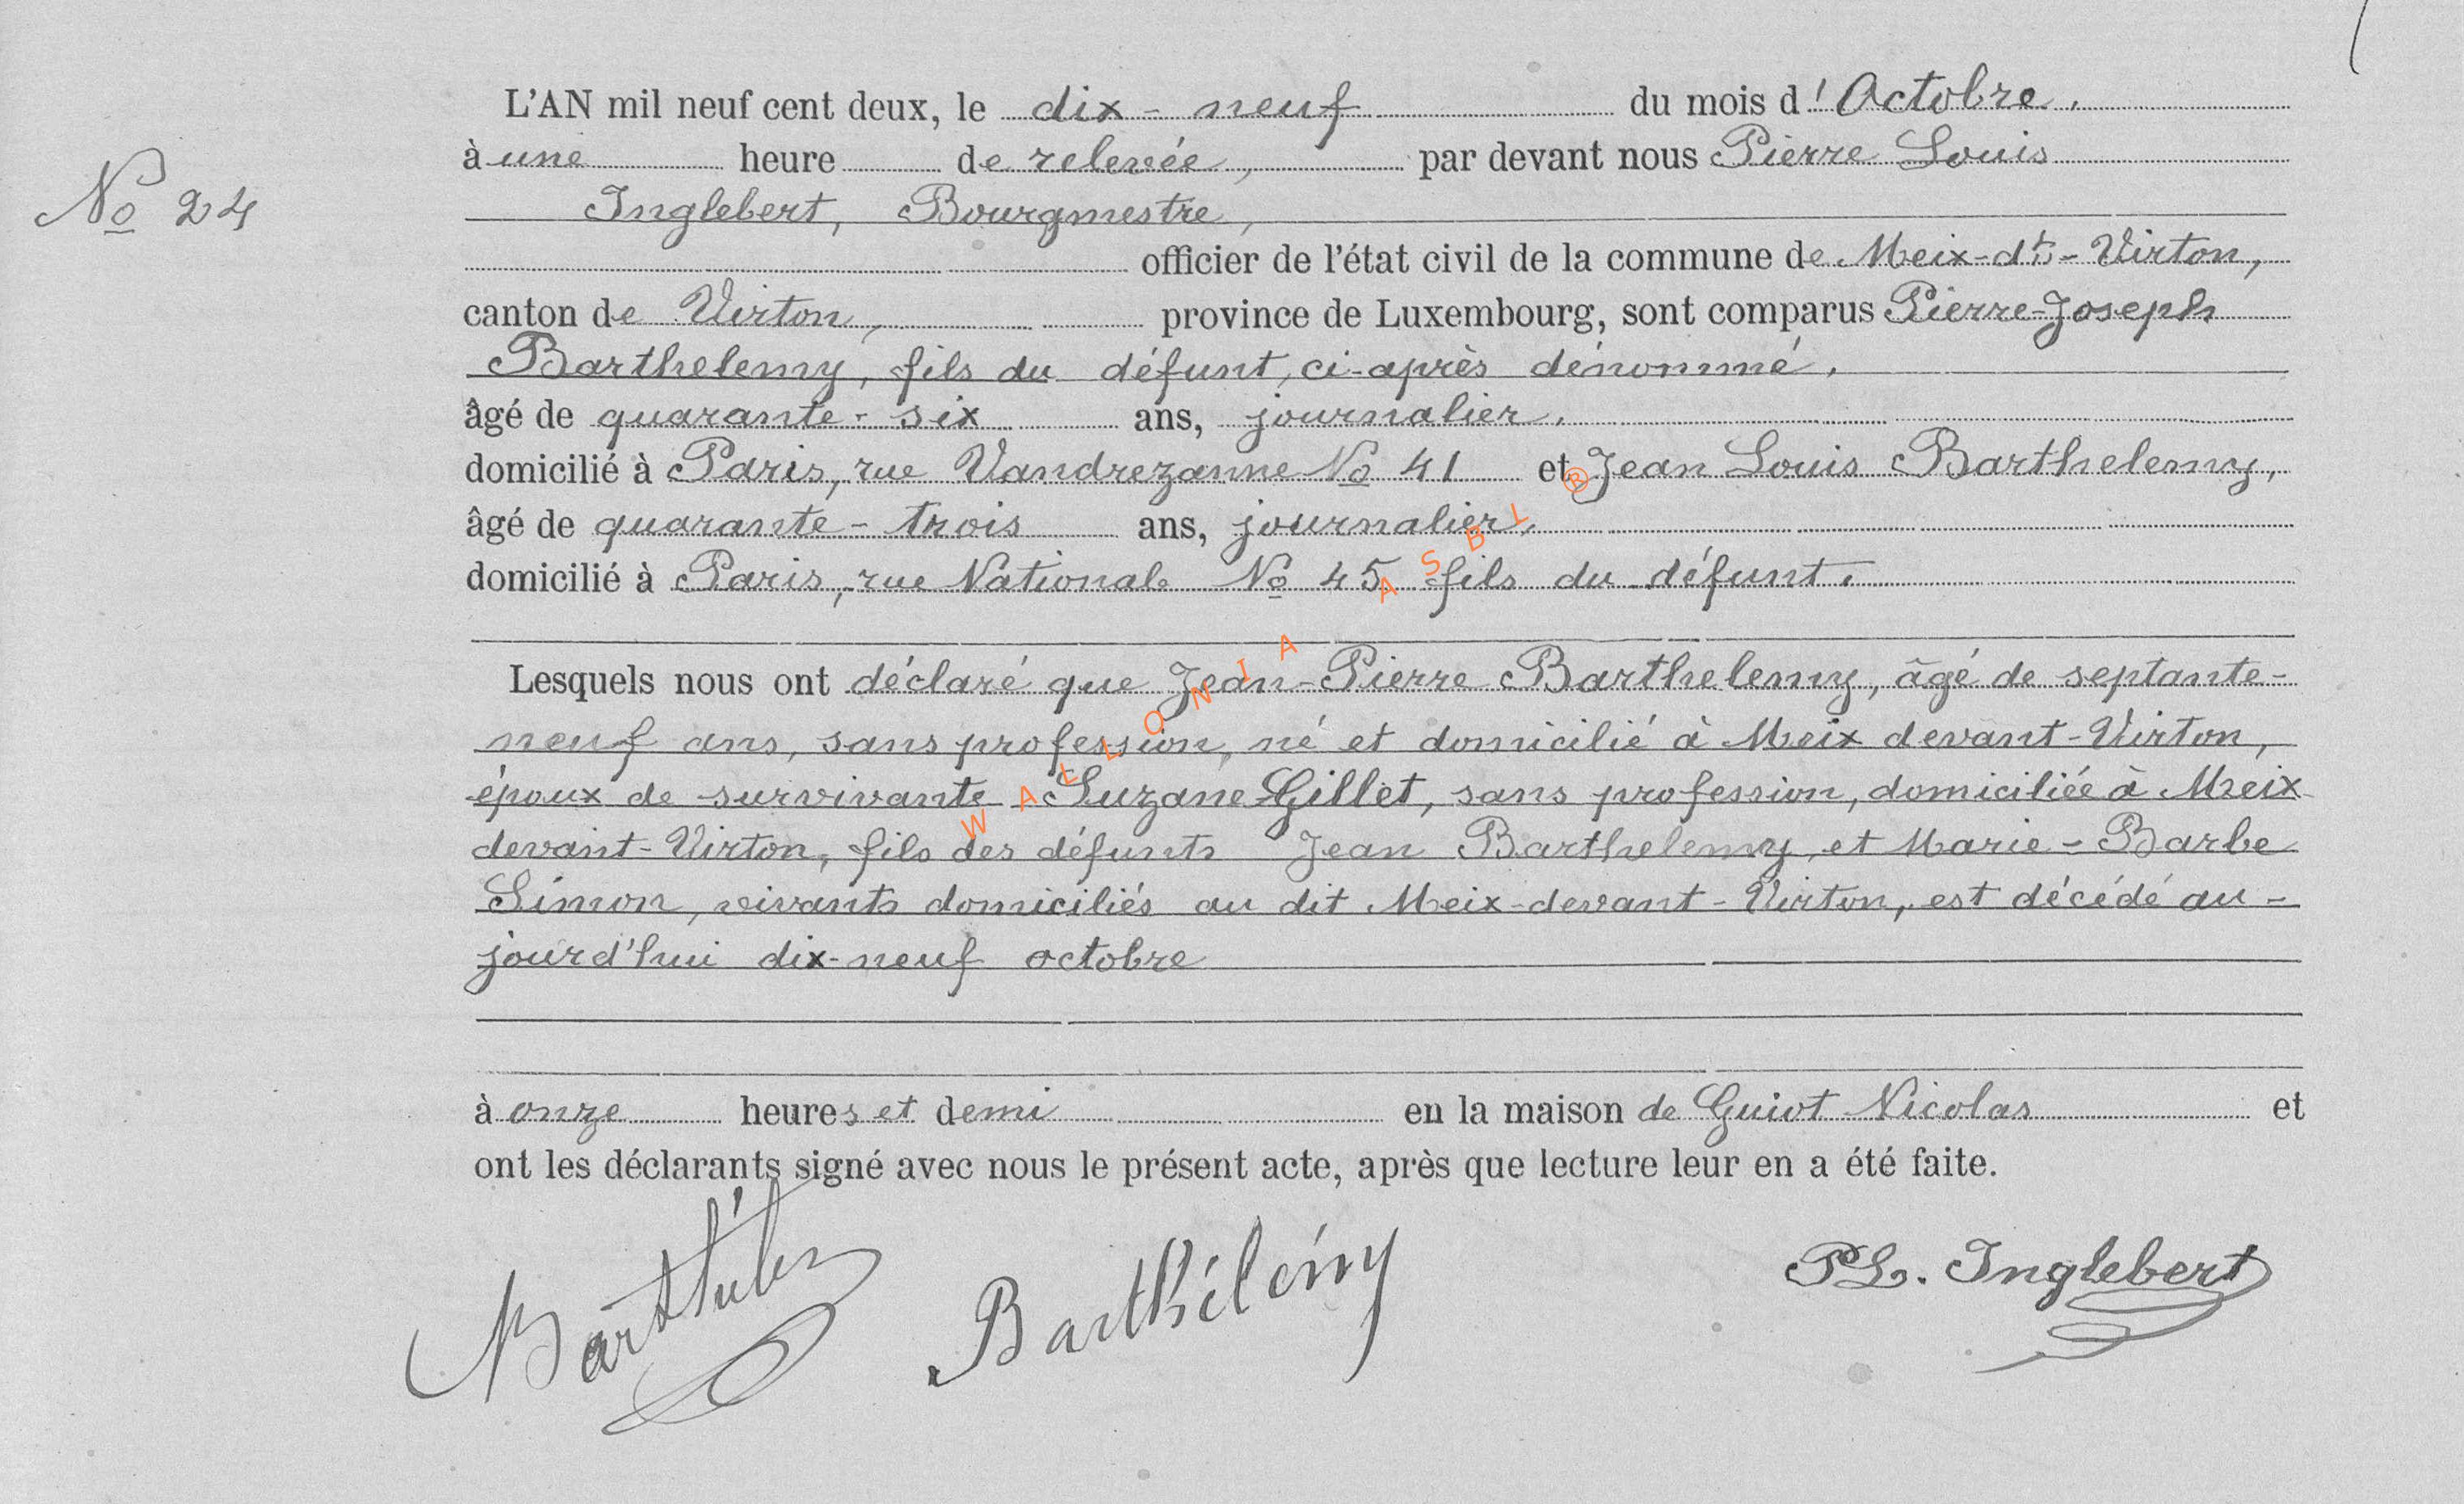 L'AN mil neuf cent deux, le dix-neuf du mois d'Octobre.
à une heure de relevée, par devant nous Pierre Louis
No 24
Inglebert, Bourgmestre,
officier de l'état civil de la commune de Meix-dt-Virton,
canton de Virton, province de Luxembourg, sont comparus Pierre-Joseph
Barthelemy, fils du défunt, ci-après dénommé.
âgé de quarante-six ans, journalier.
domicilié à Paris, rue Vandrezanne No 41 et Jean Louis Barthelemy,
âgé de quarante-trois ans, journalier.
domicilié à Paris, rue Nationale No 45 fils du défunt.
Lesquels nous ont déclaré que Jean-Pierre Barthelemy, âgé de septante-
neuf ans, sans profession, né et domicilié à Meix devant-Virton,
époux de survivante Suzane Gillet, sans profession, domiciliée à Meix
devant-Virton, fils des défunts Jean Barthelemy et Marie-Barbe
Simon, vivants domiciliés au dit Meix-devant-Virton, est décédé au-
jourd'hui dix-neuf octobre
à onze heures et demi en la maison de Guiot Nicolas et
ont les déclarants signé avec nous le présent acte, après que lecture leur en a été faite.
Barthélemy
PL. Inglebert
WALLONIA ASBL ®